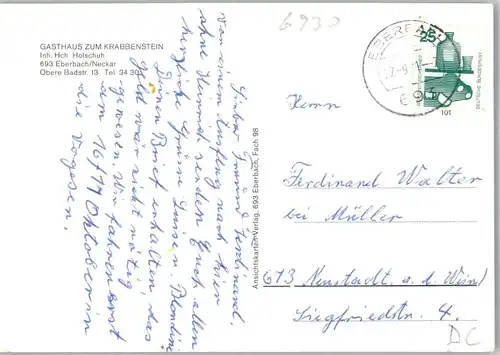 GASTHAUS ZUM KRABBENSTEIN
Inh. Hch Hotschuh
693 Eberbach/Neckar
Obere Badstr. 13 Tel 34 30
Lieber Freund Ferdinand.
Von einem Ausflug nach hier
ohne Heinrich senden Euch allen
herzliche Grüße Luise.
Deinen Brief erhalten, das
Geld wär nicht nötig
gewesen. Wir fahren erst
am 16/17 Oktober in
die Vogesen.
Ansichtskarten-Verlag, 693 Eberbach, Fach 98
6930
EBERBACH
693
25
DEUTSCHE BUNDESPOST
101
Herrn
Ferdinand Walter
bei Müller
673 Neustadt a. d. Wein
Siegfriedstr. 4.
DC